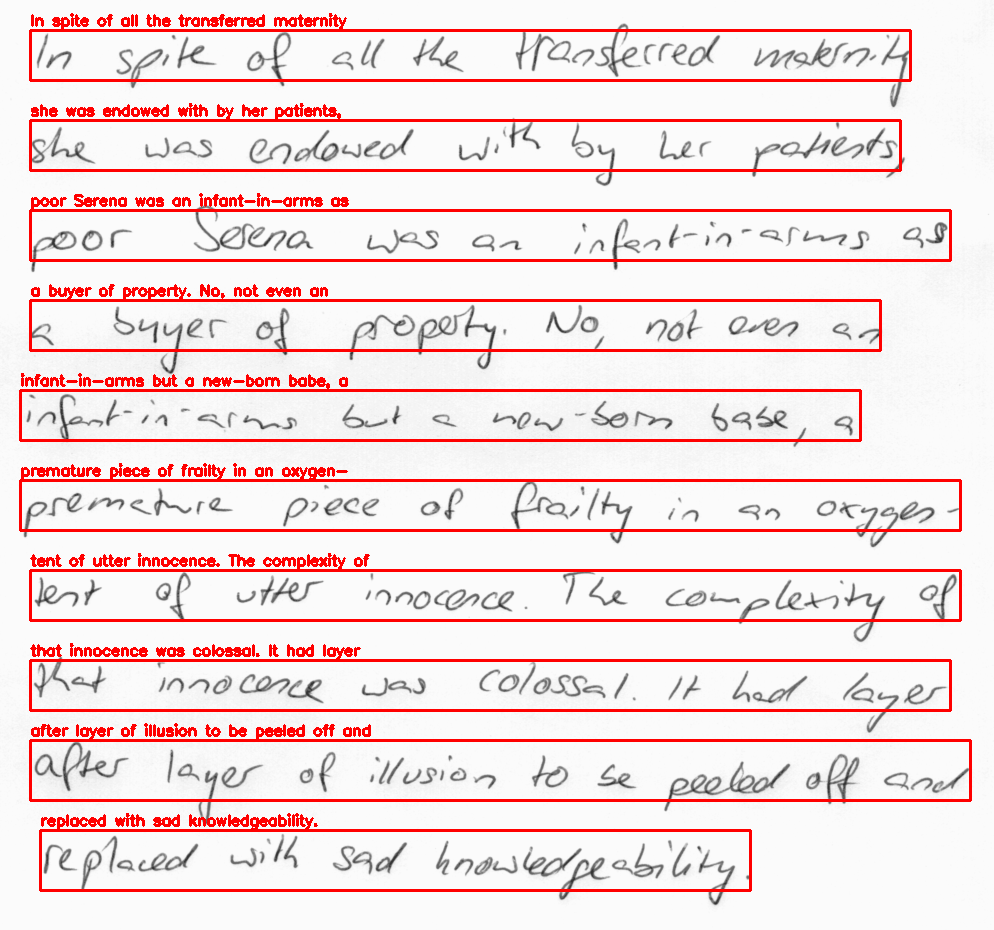 In spite of all the transferred maternity
In spite of all the transferred maternity
she was endowed with by her patients,
she was endowed with by her patients,
poor Serena was an infant-in-arms as
poor Serena was an infant-in-arms as
a buyer of property. No, not even an
a buyer of property. No, not even an
infant-in-arms but a new-born babe, a
infant-in-arms but a new-born babe, a
premature piece of frailty in an oxygen-
premature piece of frailty in an oxygen-
tent of utter innocence. The complexity of
tent of utter innocence. The complexity of
that innocence was colossal. It had layer
that innocence was colossal. It had layer
after layer of illusion to be peeled off and
after layer of illusion to be peeled off and
replaced with sad knowledgeability.
replaced with sad knowledgeability.